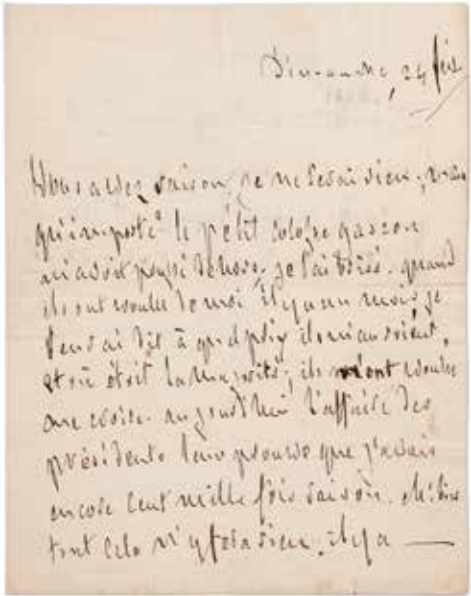 Dimanche, 24 fév.
Vous avez raison, je ne serai rien; mais
qu'importe? le petit colosse gascon
m'avoit poussé dehors, je l'ai brisé. quand
ils ont voulu de moi, il y a un mois, je
leur ai dit à quel prix ils m'auroient,
et où étoit la majorité; ils m'ont voulu
me croire. aujourd'hui l'affaire des
présidents leur prouve que j'avais
encore cent mille fois raison. eh! bien
tout cela n'y fera rien. il y a —